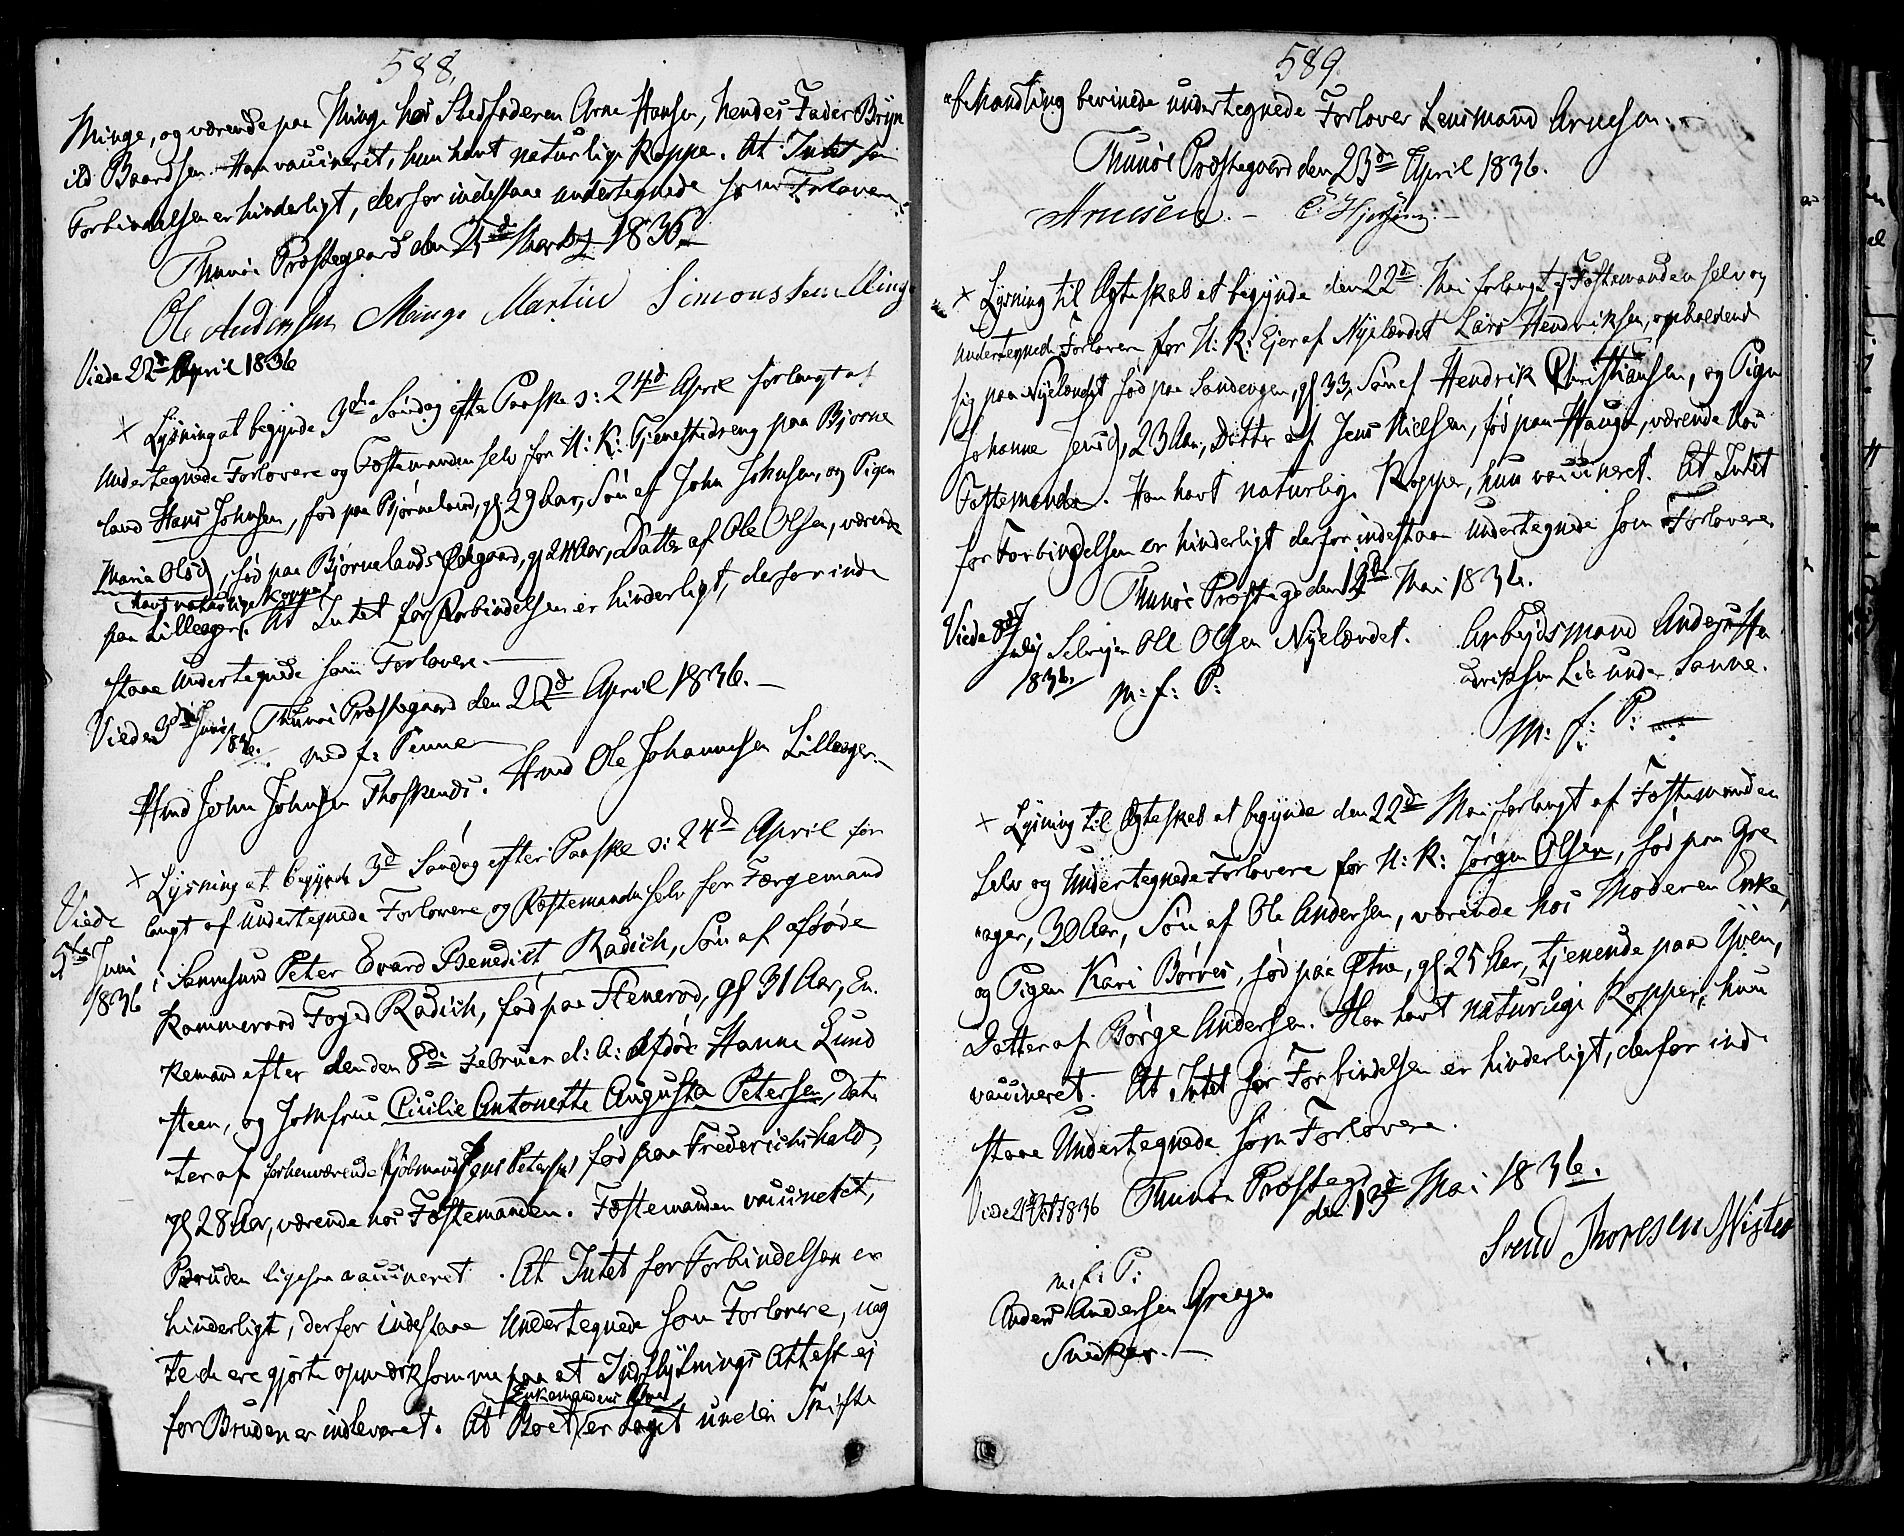 588.
Minge, og værende paa Minge hos Stedfaderen Arne Hansen, hendes Fader Bryn
ild Baardsen. Han vaccineret, hun havt naturlige Kopper. At Intet for
Forbindelsen er hinderligt, derfor indestaae undertegnede som Forlovere.
Thunøe Præstegaard den Marts 1836
Ole Andersen Minge Martin Simonssen Minge
Viede 22d April 1836
× Lysning at begynde 3die Søndag efter Paaske ɔ: 24d April forlangt af
Undertegnede Forlovere og Fæstemanden selv for U: K: Tjenestedreng paa Bjørne
land Hans Johnsen, fød paa Bjørneland, gl 29 Aar, Søn af John Johnsen, og Pigen
Maria Olsd), fød paa Bjørnelands Ødegaard, gl 24 Aar, Datter af Ole Olsen, værende
havt naturlige Kopper
paa Lilleager. At Intet for Forbindelsen er hinderligt, derfor inde
staae Undertegnede som Forlovere.
Thunøe Præstegaard den 22d April 1836.
Viede Juni 1836.
med f: Penne
Hmd John Johnsen Thoskends. Hmd Ole Johannesen Lilleager.
× Lysning at begynde 3d Søndag efter Paaske ɔ: 24d April for
langt af Undertegnede Forlovere og Fæstemanden selv for Færgemand
Viede 5te Juni 1836
i Sannesund Peter Evard Benedict Radich, Søn af afdøde
Kammeraad Foged Radich, fød paa Stenerød, gl 31 Aar, En
kemand efter den den 8de Februar d: A: Afdøde Hanne Lund
steen, og Jomfrue Cicilie Antonette Augusta Petersen, Dat
ter af forhenværende Kjøbmand Jens Petersen fød paa Frederichshald,
gl 28 Aar, værende hos Fæstemanden. Fæstemanden vaccineret,
Bruden ligesaa vaccineret. At Intet for Forbindelsen er
hinderligt, derfor indestaae Undertegnede som Forlovere, uag
tede ere gjorte opmærksomme paa at Indflytnings Attest ej
for Bruden er indleveret. At Enkemandens Boe Boet er taget under Skifte
589.
behandling bevinede undertegnede Forlover Lensmand Arnesen.
Thunøe Præstegaard den 23de April 1836.
Arnesen. –
× Lysning til Ægteskab at begynde den 22d Mai forlangt af Fæstemanden selv og
undertegnede Forlovere for U: K: Ejer af Nyelændet Lars Hendriksen, opholdend
sig paa Nyelændet fød paa Sandengen, gl 33, Søn af Hendrik Christiansen, og Pigen
Johanne Jensd), 23 Aar, Datter af Jens Nielsen, fød paa Hauge, værende hos
Fæstemanden. Han havt naturlige Kopper, hun vaccineret. At Intet
for Forbindelsen er hinderligt derfor indestaae undertegnede som Forlovere.
Thunøe Præsteg den 13d Mai 1836.
Viede Julij 1836.
Selvejer Ole Olsen Nyelændet. Arbejdsmand Anders
driksen Lie under Sanne.
m: f: P:
M: f: P:
× Lysning til Ægteskab at begynde den 22d Mai forlangt af Fæstemanden
selv og Undertegnede Forlovere for U: K: Jørgen Olsen, fød paa Gre
ager, 30 Aar, Søn af Ole Andersen, værende hos Moderen Enke,
og Pigen Kari Børres, fød paa gl 25 Aar, tjenende paa Yven,
Datter af Børge Andersen. Han havt naturlige Kopper, hun
vaccineret. At Intet for Forbindelsen er hinderligt, derfor ind
staae Undertegnede som Forlovere.
Thunøe Præsteg
den 13d Mai 1836.
Viede 1836
Svend Thoresen
m: f: P:
Anders Andersen Greager
Snedker.